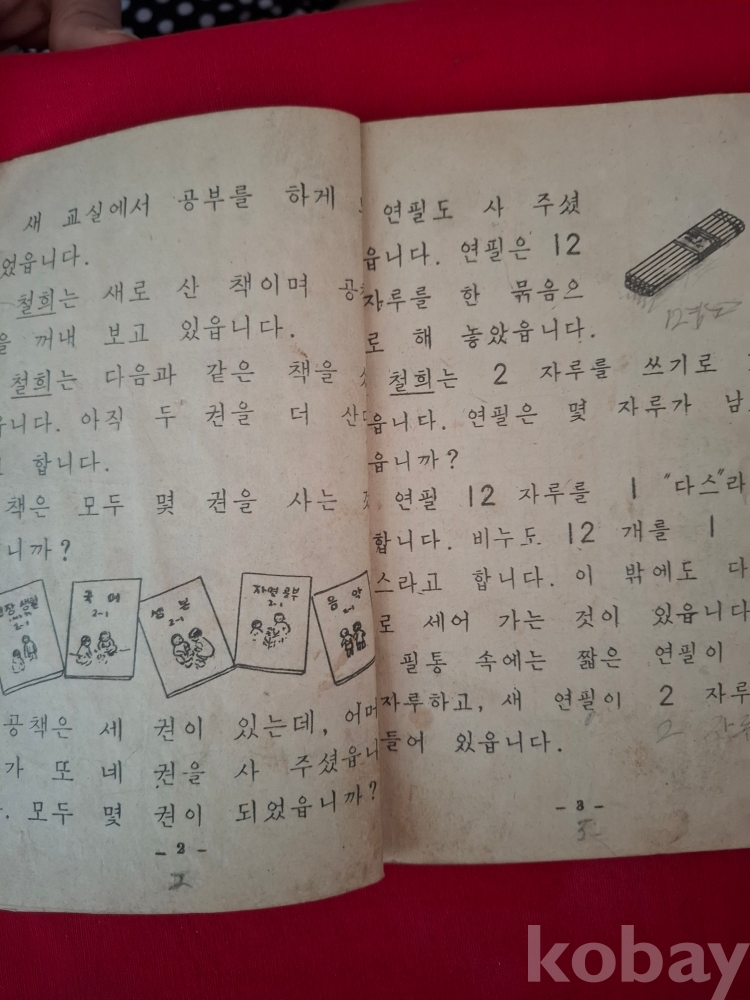 새 교실에서 공부를 하게
었읍니다.
철희는 새로 산 책이며
꺼내 보고 있읍니다.
철희는 다음과 같은 책을
읍니다. 아직 두 권을 더
합니다.
책은 모두 몇 권을 사는
니까?
생활
국어
2-1
셈본
2-1
자연 공부
2-1
음악
공책은 세 권이 있는데, 어머
가 또 네 권을 사 주셨읍니
. 모두 몇 권이 되었읍니까?
- 2 -
2
연필도 사 주셨
읍니다. 연필은 12
자루를 한 묶음으
로 해 놓았읍니다.
철희는 2 자루를 쓰기로
읍니다. 연필은 몇 자루가 남
읍니까?
연필 12 자루를 1 "다스"라
합니다. 비누도 12 개를 1
스라고 합니다. 이 밖에도 다
로 세어 가는 것이 있읍니다
필통 속에는 짧은 연필이
자루하고, 새 연필이 2 자루
들어 있읍니다.
2
- 3 -
kobay